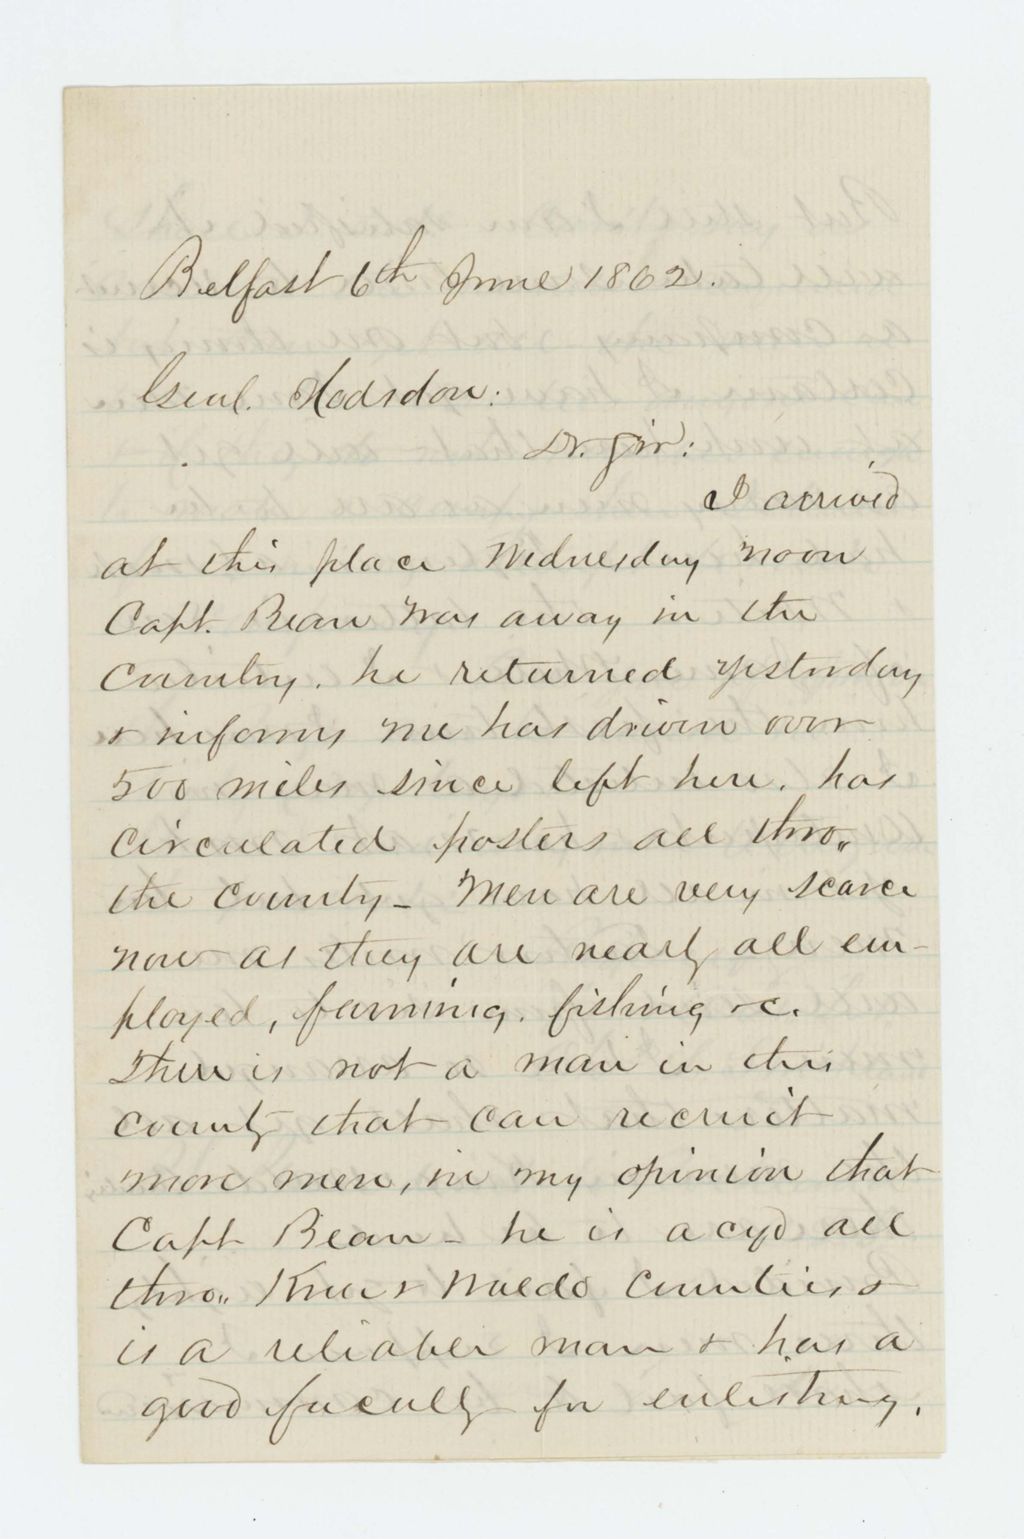 Belfast 6th June 1862.
Genl. Hodsdon:
Dr. Sir:
I arrived
at this place Wednesday noon
Capt. Bean was away in the
Country. he returned yesterday
& informs me has driven over
500 miles since left here. has
circulated posters all thro"
the County - Men are very scarce
now as they are nearly all em-
ployed, farming. fishing &c.
There is not a man in this
county that can recruit
more men, in my opinion that
Capt Bean - he is acqd all
thro" Knox & Waldo Counties &
is a reliable man & has a
good faculty for enlisting.